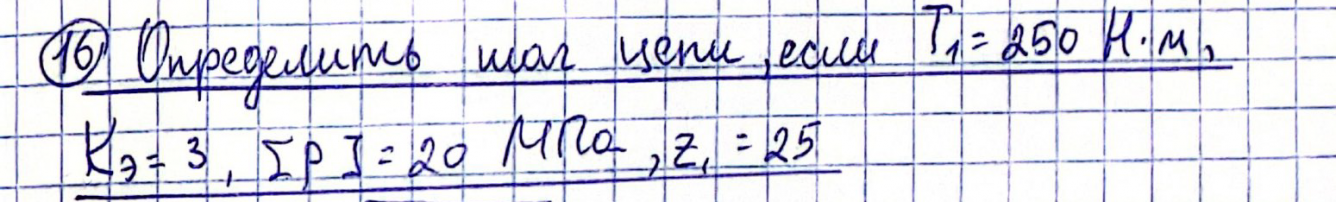 16 Определить шаг цепи, если T₁ = 250 Н·м,
Kэ = 3, [p] = 20 МПа, z₁ = 25